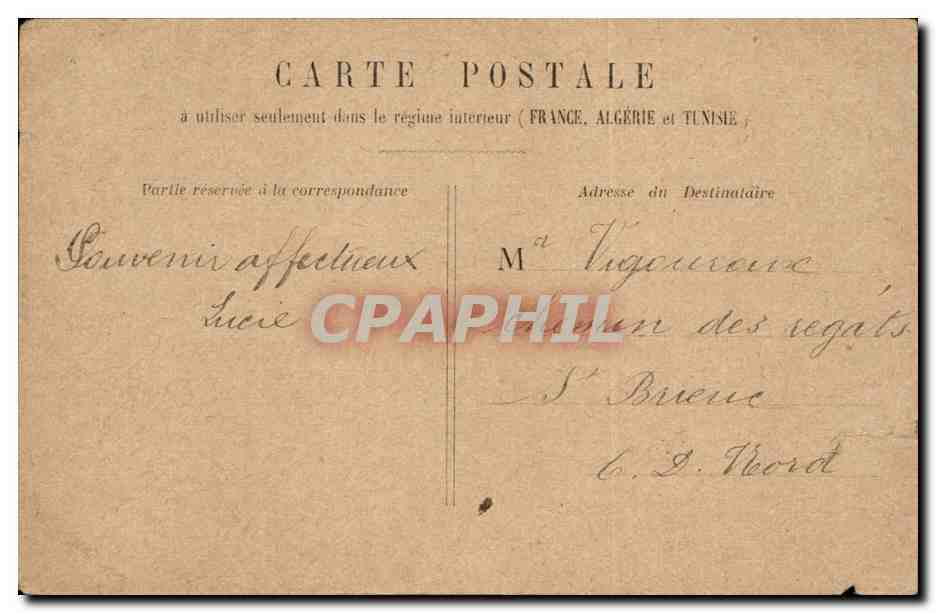 CARTE POSTALE
à utiliser seulement dans le régime interieur (FRANCE, ALGÉRIE et TUNISIE)
Partie réservée à la correspondance
Souvenir affectueux
Lucie
Adresse du Destinataire
Ma Vigouroux
Chemin des regâts
St Brieuc
C. D. Nord
CPAPHIL